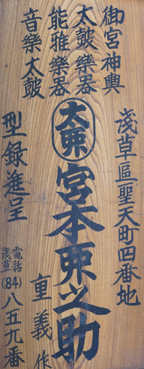 御宮神輿
太鼓樂器
能雅樂器
音樂太鼓
淺草區聖天町四番地
大東
宮本東之助
重義作
型録進呈
電話
淺草(84)八五九番